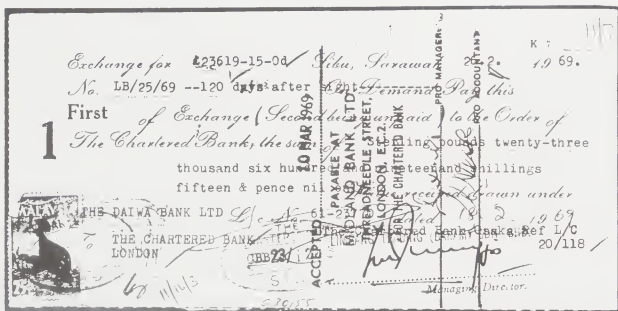 K 7
11/7
Exchange for £23619-15-0d Sibu, Sarawak 20. 2. 1969.
No. LB/25/69 --120 days after sight Demand Pay this
First of Exchange (Second being unpaid) to the Order of
1
The Chartered Bank, the sum of Sterling pounds twenty-three
thousand six hundred and nineteen and shillings
fifteen & pence nil received drawn under
THE DAIWA BANK LTD L/C No 61-237 dated 18. 2. 1969
To THE CHARTERED BANK The Chartered Bank Osaka Ref L/C
LONDON 20/118
Managing Director.
ACCEPTED 10 MAR 1969
PAYABLE AT
MIDLAND BANK LTD
THREADNEEDLE STREET,
LONDON, E.C.2.
FOR THE CHARTERED BANK
PRO MANAGER
PRO ACCOUNTANT
MALAYA